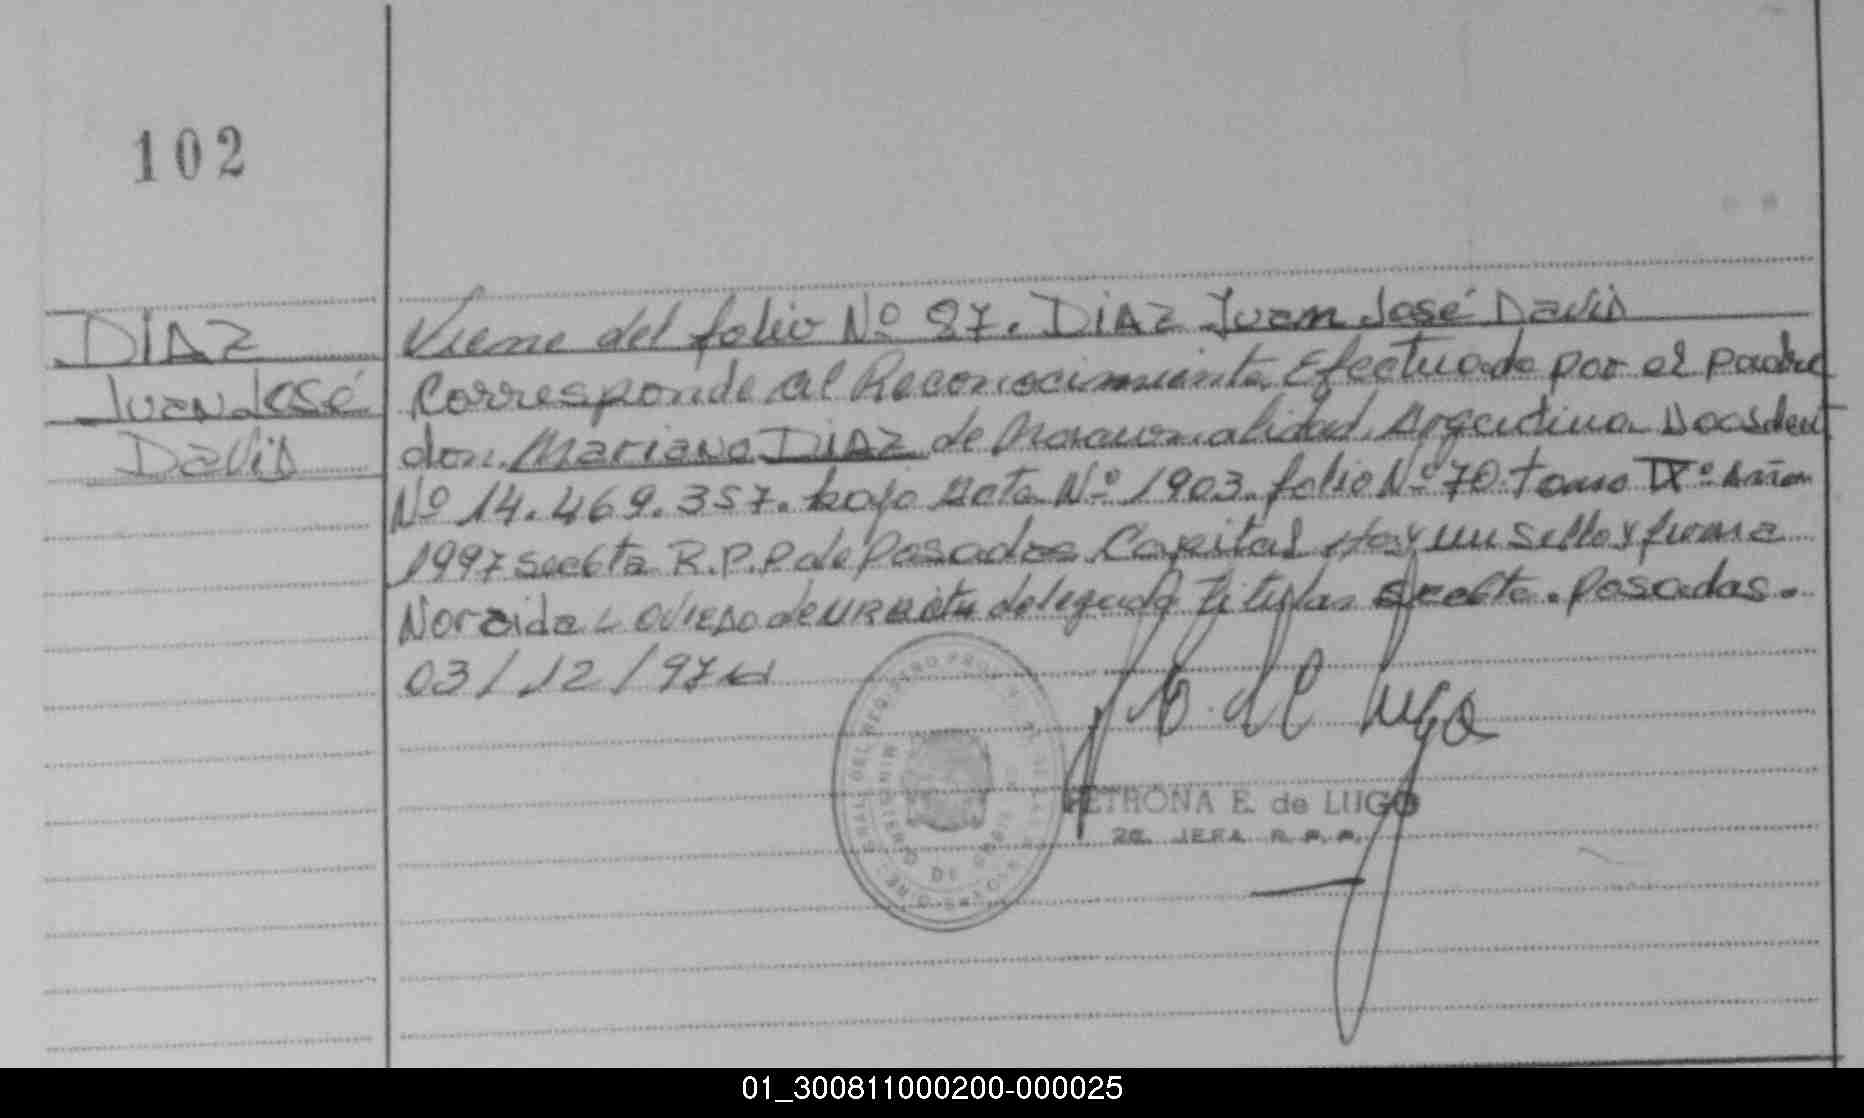 102
DIAZ
Juan José
David
Viene del folio Nº 27. DIAZ Juan José David
Corresponde al Reconocimiento Efectuado por el padre
don. Mariano DIAZ de Nacionalidad Argentina
Nº 14.469.357. bajo Acta Nº 1903. folio Nº 70. tomo IXº
1997 R.P.P de Posadas Capital Hay un sello y firma
Noraida L delegada titular Posadas.
03/12/97
P. E. de Lugo
DEL REGISTRO PROVINCIAL DE
MINISTERIO DE
PETRONA E. de LUGO
2a. JEFA R. P. P.
01_300811000200-000025